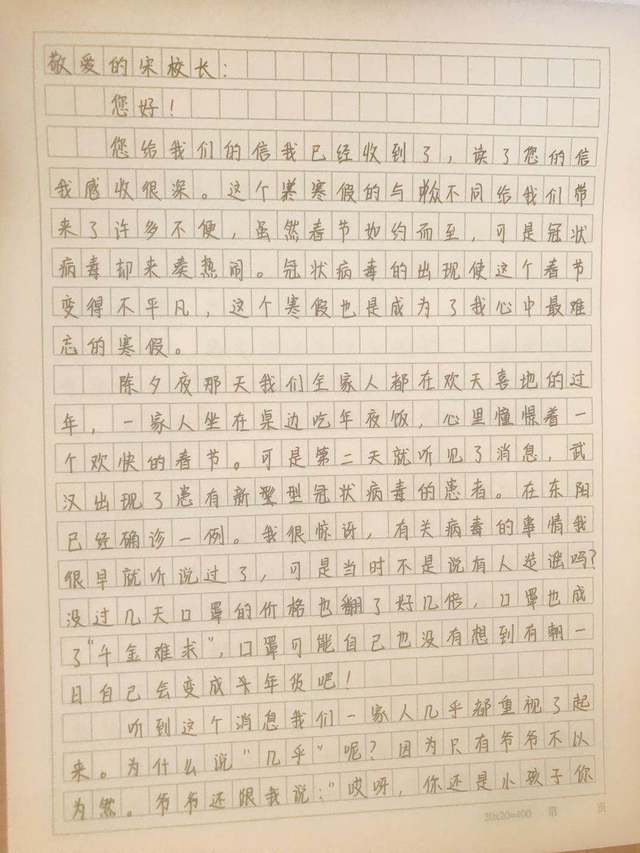 敬爱的宋校长：
您好！
您给我们的信我已经收到了，读了您的信
我感收很深。这个寒寒假的与众不同给我们带
来了许多不便，虽然春节如约而至，可是冠状
病毒却来凑热闹。冠状病毒的出现使这个春节
变得不平凡，这个寒假也是成为了我心中最难
忘的寒假。
除夕夜那天我们全家人都在欢天喜地的过
年，一家人坐在桌边吃年夜饭，心里憧憬着一
个欢快的春节。可是第二天就听见了消息，武
汉出现了患有新型冠状病毒的患者。在东阳
已经确诊一例。我很惊讶，有关病毒的事情我
很早就听说过了，可是当时不是说有人造谣吗？
没过几天口罩的价格也翻了好几倍，口罩也成
了“千金难求”，口罩可能自己也没有想到有朝一
日自己会变成头年货吧！
听到这个消息我们一家人几乎都重视了起
来。为什么说“几乎”呢？因为只有爷爷不以
为然。爷爷还跟我说：“哎呀，你还是小孩子你
20x20=400 第 页